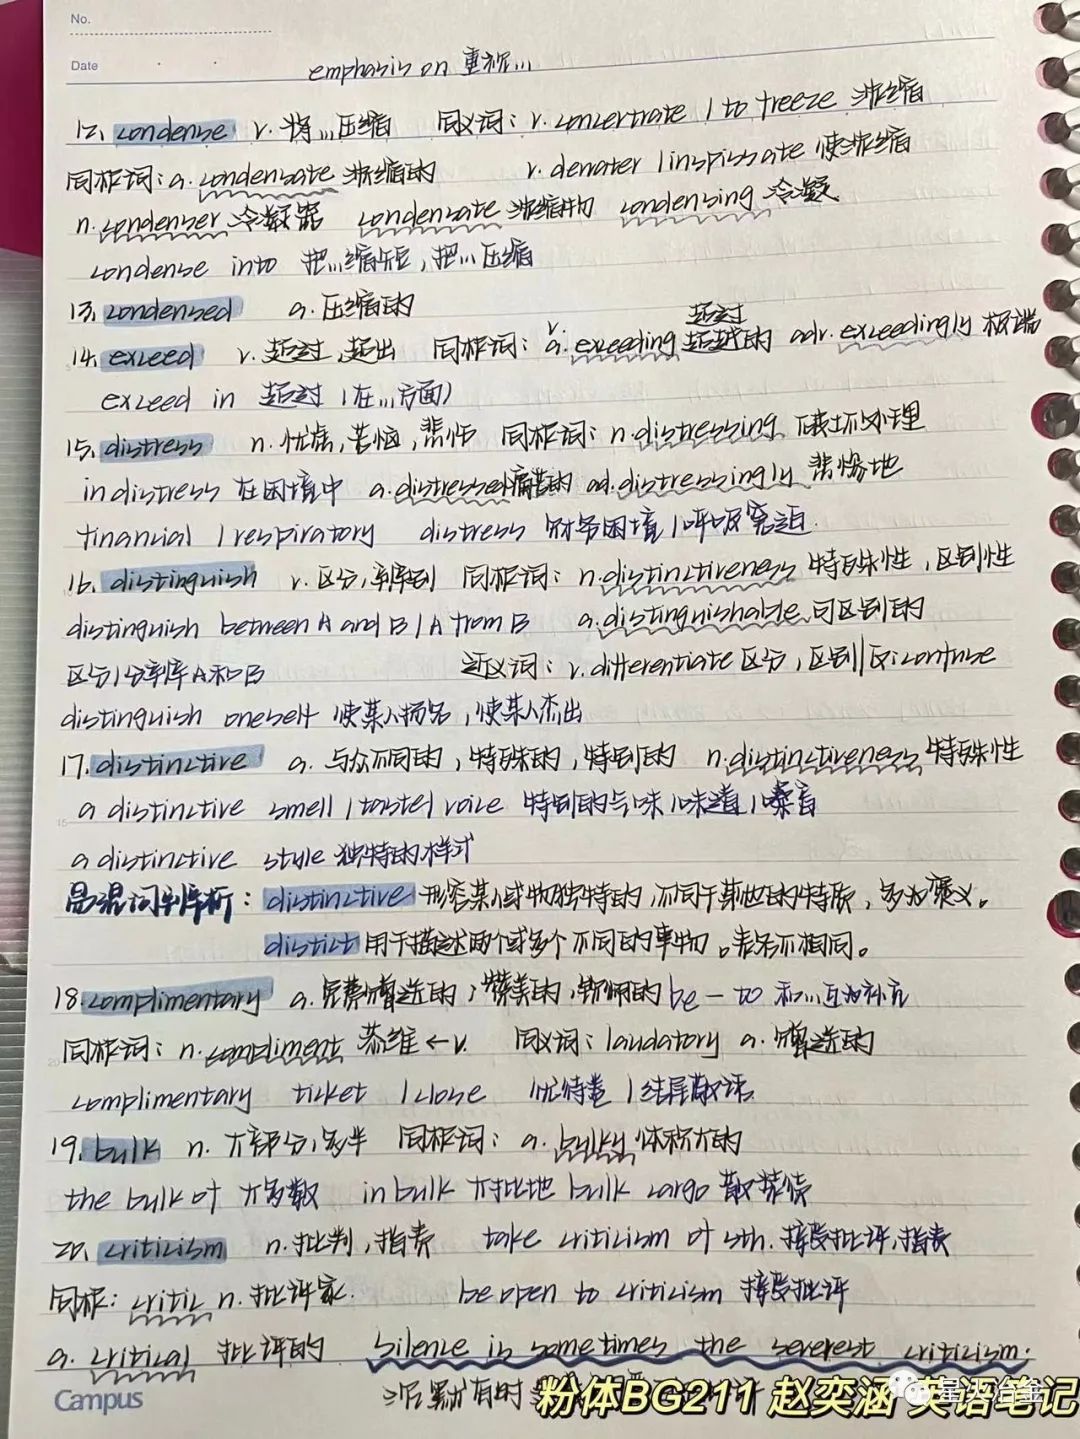 No.
Date
emphasis on 重视...
12. condense v. 将...压缩 同义词: v. concertrate / to freeze 浓缩
同根词: a. condensate 浓缩的 v. demater / inspissate 使浓缩
n. condenser 冷凝器 condensate 浓缩物 condensing 冷凝
condense into 把...缩短, 把...压缩
13. condensed a. 压缩的
14. exceed v. 超过, 超出 同根词: v. 超过 a. exceeding 超越的 adv. exceedingly 极端
exceed in 超过 (在...方面)
15. distress n. 忧虑, 苦恼, 悲伤 同根词: n. distressing 破坏处理
in distress 在困境中 a. distressed 痛苦的 ad. distressingly 悲惨地
financial / respiratory distress 财务困境 / 呼吸窘迫.
16. distinguish v. 区分, 辨别 同根词: n. distinctiveness 特殊性, 区别性
distinguish between A and B / A from B a. distinguishable 可区别的
区分/分辨A和B 近义词: v. differentiate 区分, 区别 || 反: confuse
distinguish oneself 使某人扬名, 使某人杰出
17. distinctive a. 与众不同的, 特殊的, 特别的 n. distinctiveness 特殊性
a distinctive smell / taste / voice 特别的气味 / 味道 / 嗓音
a distinctive style 独特的样式
易混词辨析: distinctive 形容某人或物独特的, 不同于其他的特质, 多为褒义。
distict 用于描述两个或多个不同的事物。表示不相同。
18. complimentary a. 免费赠送的, 赞美的, 钦佩的 be — to 和...互为补充
同根词: n. compliment 恭维 ← v. 同义词: laudatory a. 赠送的
complimentary ticket / close 优待卷 / 结尾敬语
19. bulk n. 大部分, 多半 同根词: a. bulky 体积大的
the bulk of 大多数 in bulk 大批地 bulk cargo 散装货
20. criticism n. 批判, 指责 take criticism of sth. 接受批评, 指责
同根: critic n. 批评家. be open to criticism 接受批评
a. critical 批评的 Silence is sometimes the severest criticism.
Campus
沉默有时
粉体BG211 赵奕涵 英语笔记
星火冶金